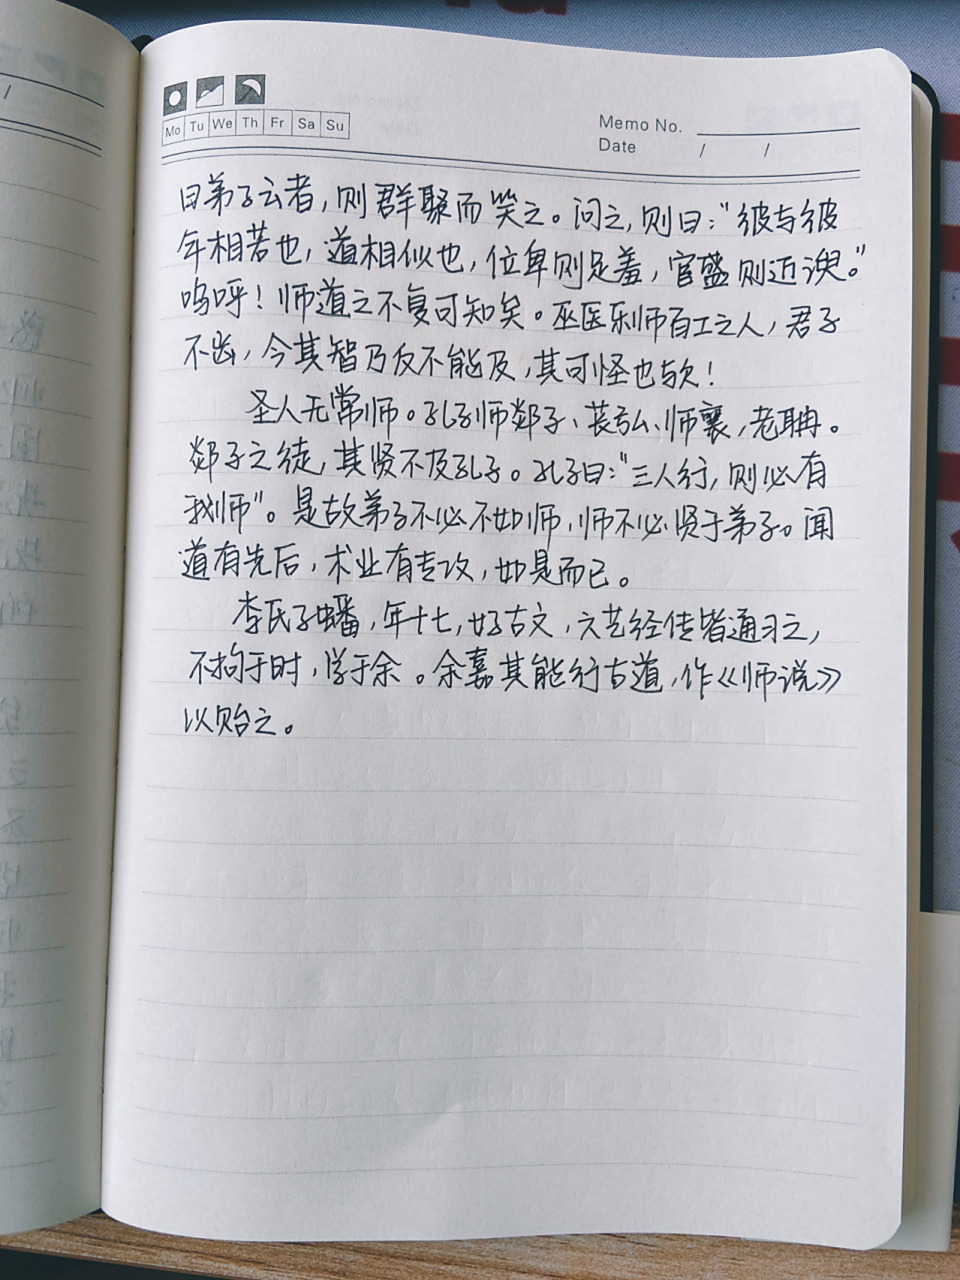 Mo Tu We Th Fr Sa Su
Memo No.
Date / /
曰弟子云者，则群聚而笑之。问之，则曰："彼与彼
年相若也，道相似也，位卑则足羞，官盛则近谀。"
呜呼！师道之不复可知矣。巫医乐师百工之人，君子
不齿，今其智乃反不能及，其可怪也欤！
圣人无常师。孔子师郯子、苌弘、师襄，老聃。
郯子之徒，其贤不及孔子。孔子曰："三人行，则必有
我师"。是故弟子不必不如师，师不必贤于弟子。闻
道有先后，术业有专攻，如是而已。
李氏子蟠，年十七，好古文，六艺经传皆通习之，
不拘于时，学于余。余嘉其能行古道，作《师说》
以贻之。